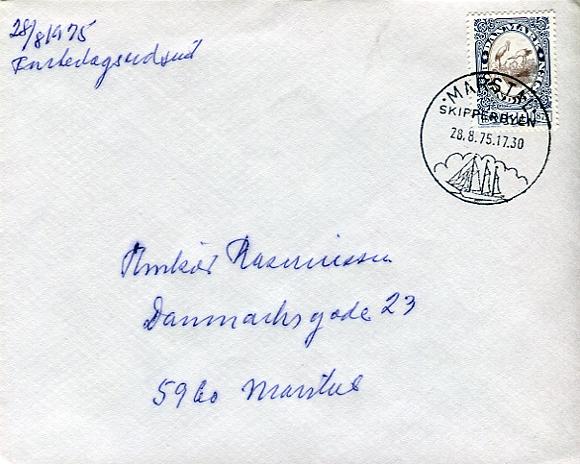 28/8 1975
DANMARK
MARSTAL
SKIPPERBYEN
28.8.75.17.30
Rasmussen
Danmarksgade 23
5960 Marstal